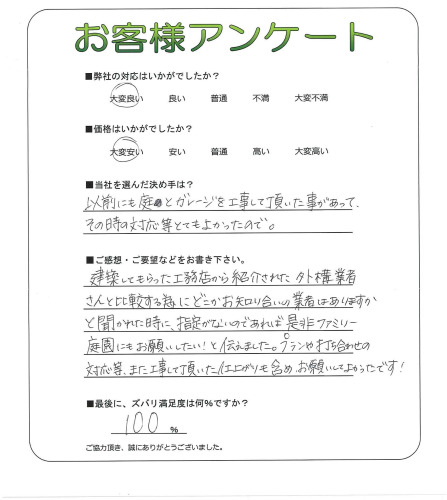 お客様アンケート
■弊社の対応はいかがでしたか？
大変良い 良い 普通 不満 大変不満
■価格はいかがでしたか？
大変安い 安い 普通 高い 大変高い
■当社を選んだ決め手は？
以前にも庭とガレージを工事して頂いた事があって、
その時の対応等とてもよかったので。
■ご感想・ご要望などをお書き下さい。
建築してもらった工務店から紹介された外構業者
さんと比較する為にどこかお知り合いの業者はありますか
と聞かれた時に、指定がないのであれば是非ファミリー
庭園にもお願いしたい！と伝えました。プランや打ち合わせの
対応等、また工事して頂いた仕上がりも含め、お願いしてよかったです！
■最後に、ズバリ満足度は何％ですか？
100 %
ご協力頂き、誠にありがとうございました。